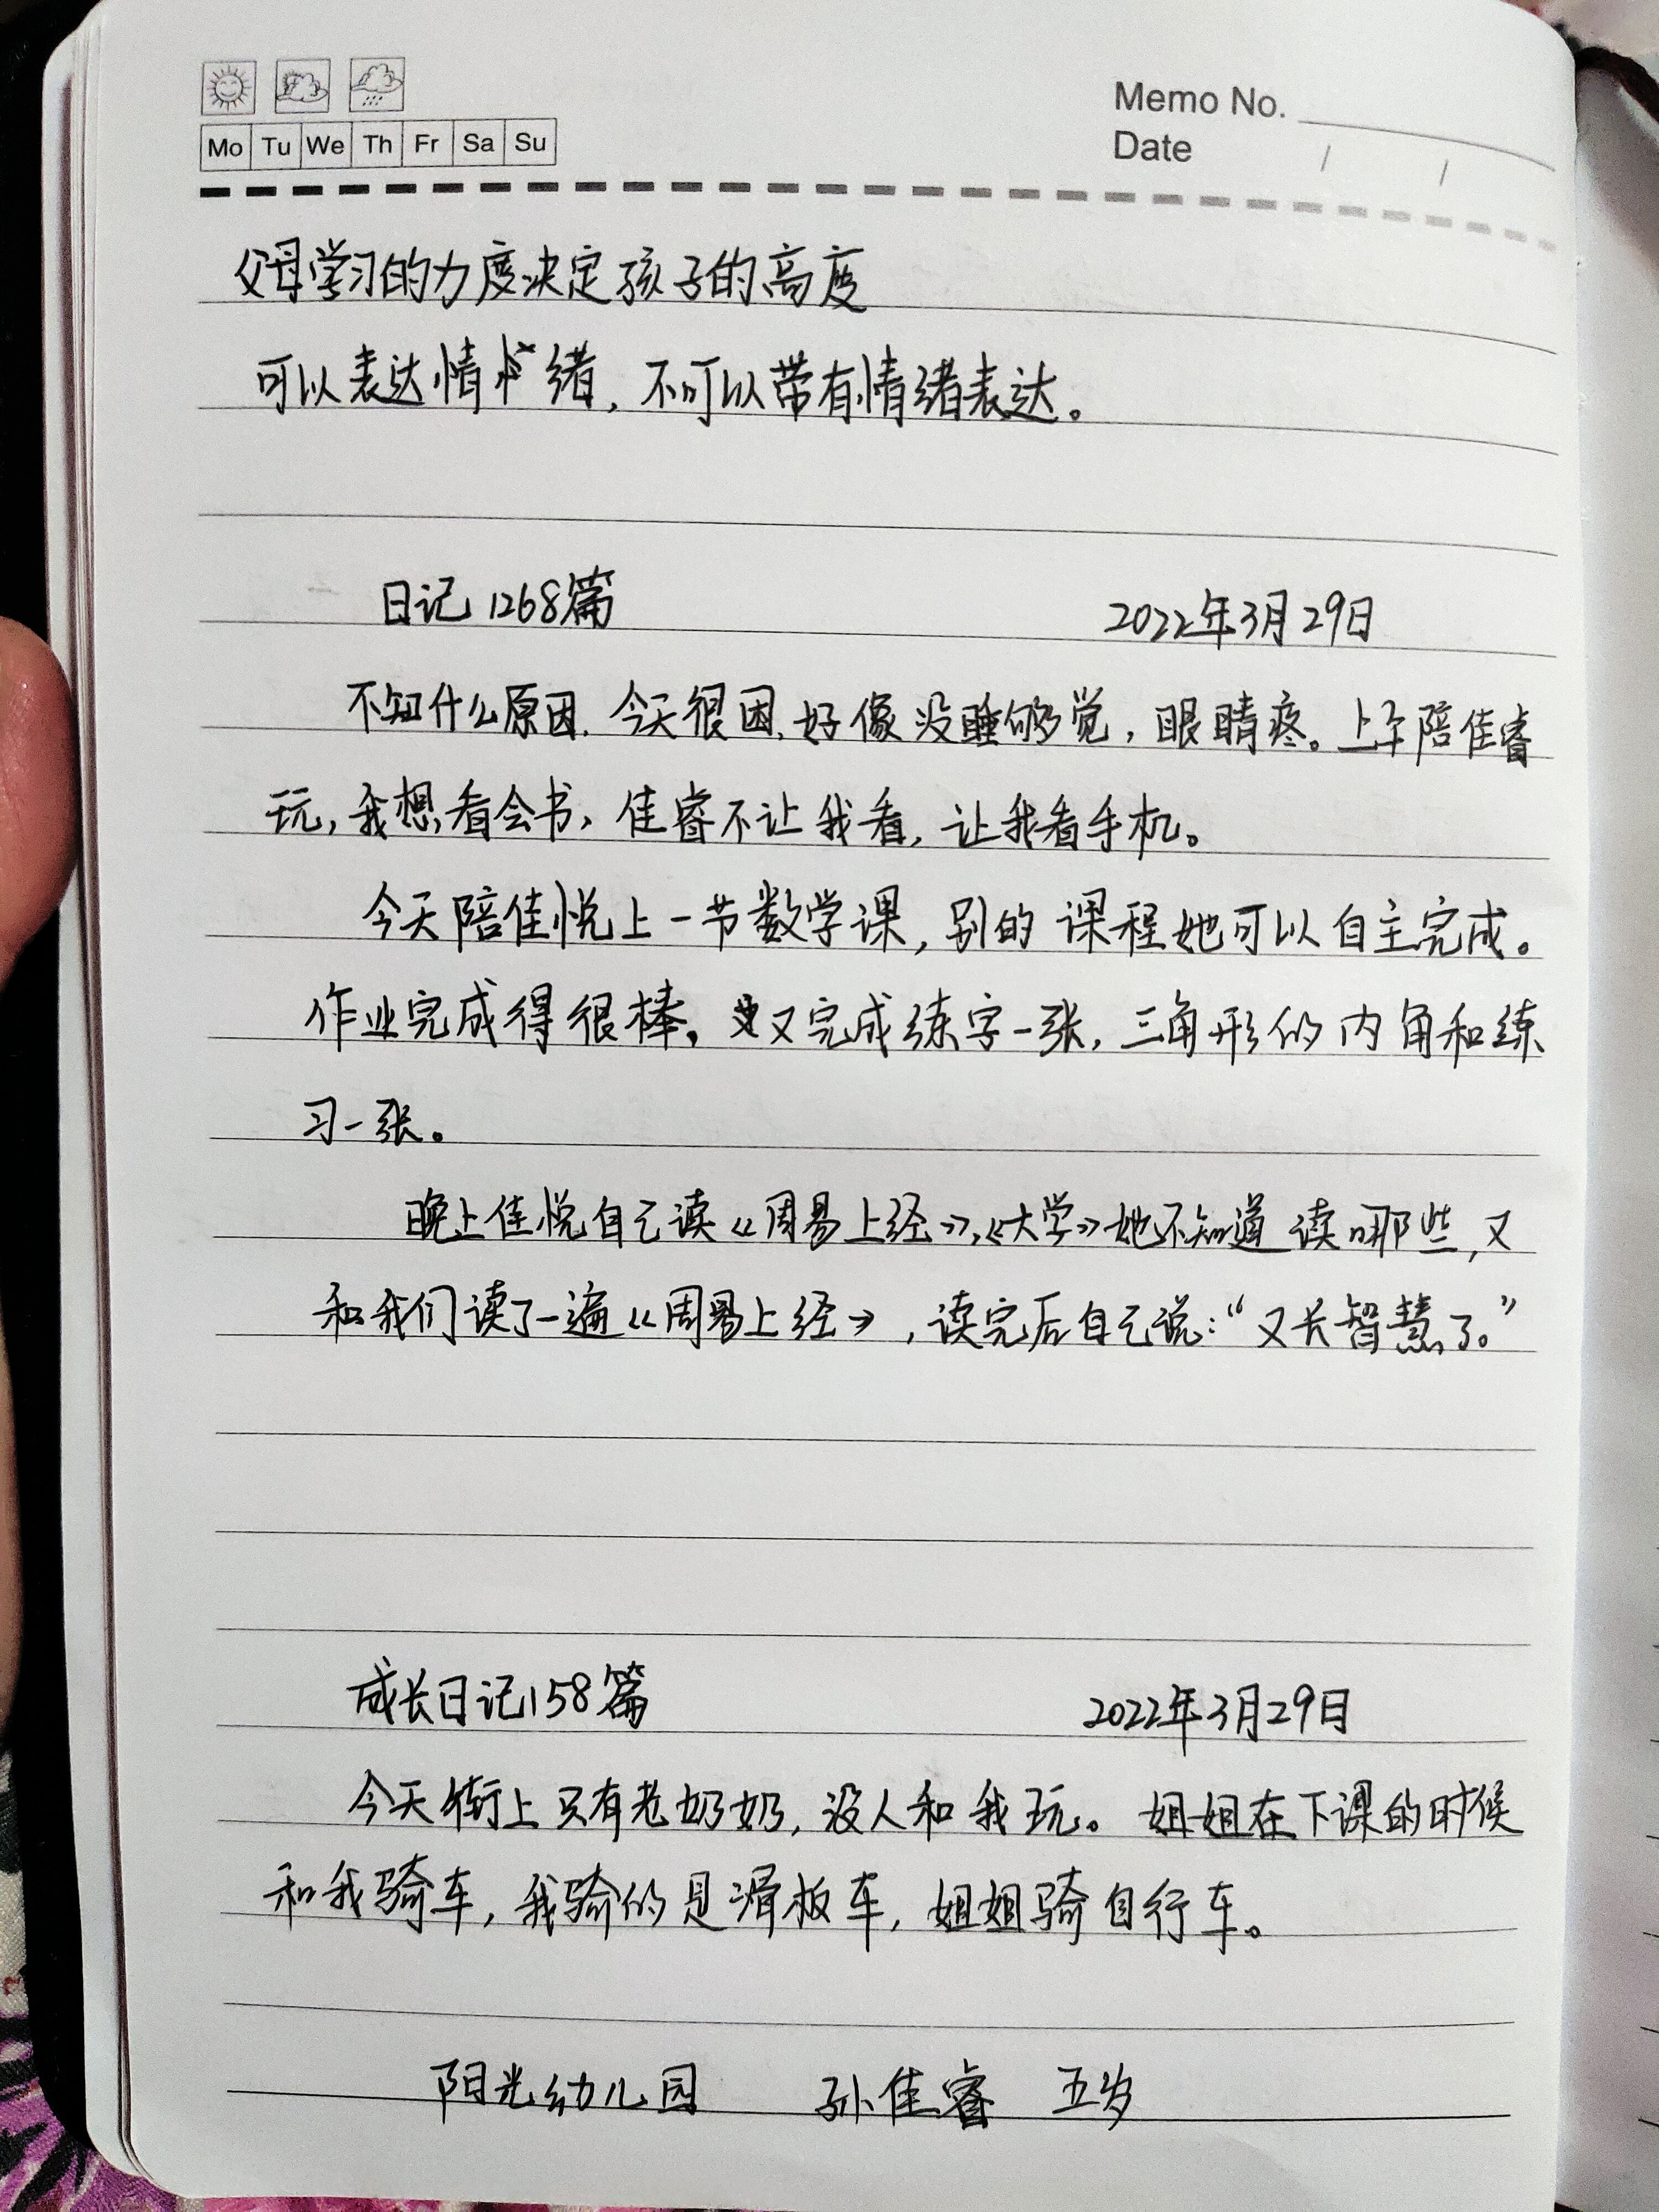 Mo Tu We Th Fr Sa Su
Memo No.
Date / /
父母学习的力度决定孩子的高度
可以表达情绪，不可以带有情绪表达。
日记1268篇 2022年3月29日
不知什么原因，今天很困，好像没睡够觉，眼睛疼。上午陪佳睿
玩，我想看会书，佳睿不让我看，让我看手机。
今天陪佳悦上一节数学课，别的课程她可以自主完成。
作业完成得很棒。又完成练字一张，三角形的内角和练
习一张。
晚上佳悦自己读《周易上经》，《大学》她不知道读哪些，又
和我们读了一遍《周易上经》，读完后自己说：“又长智慧了。”
成长日记158篇 2022年3月29日
今天街上只有老奶奶，没人和我玩。姐姐在下课的时候
和我骑车，我骑的是滑板车，姐姐骑自行车。
阳光幼儿园 孙佳睿 五岁